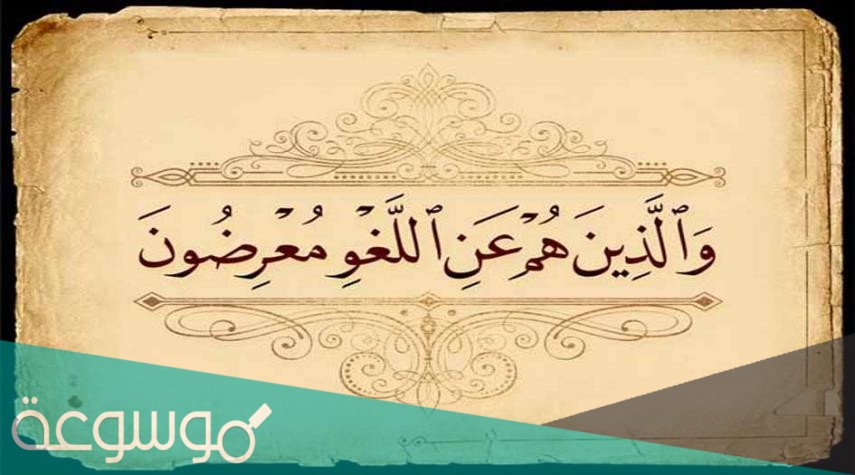 وَٱلَّذِينَ هُمْ عَنِ ٱللَّغْوِ مُعْرِضُونَ
موسوعة